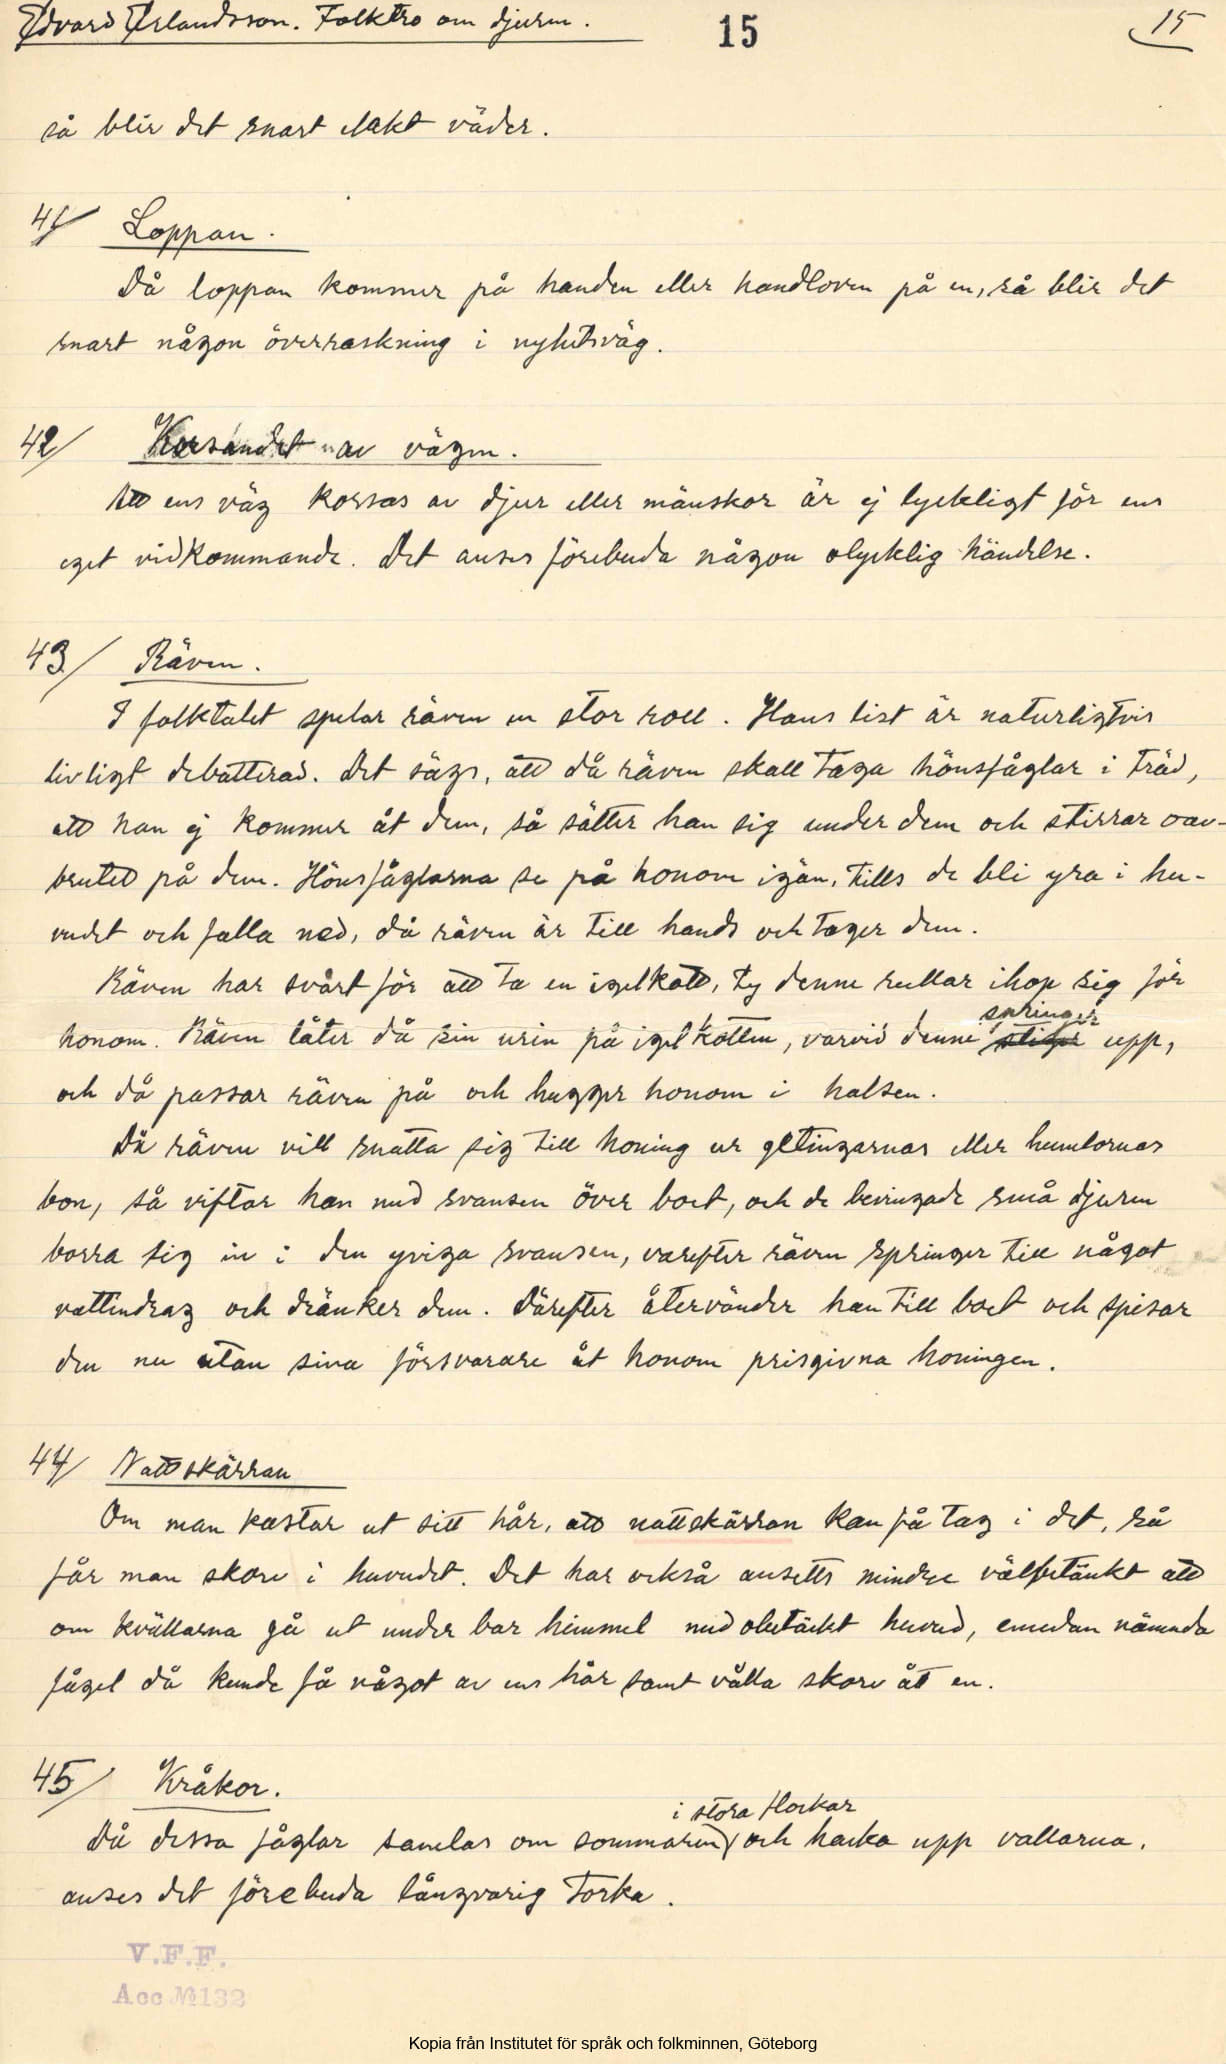 Edvard Erlandsson. Folktro om djuren.
15
15
så blir det snart elakt väder.
41/ Loppan.
Då loppan kommer på handen eller handloven på en, så blir det
snart någon överraskning i nyhetsväg.
42/ Korsandet av vägen.
Att ens väg korsas av djur eller mänskor är ej lyckligt för ens
eget vidkommande. Det anses förebuda någon olycklig händelse.
43/ Räven.
I folktalet spelar räven en stor roll. Hans list är naturligtvis
livligt debatterad. Det säges, att då räven skall taga hönsfåglar i träd,
att han ej kommer åt dem, så sätter han sig under dem och stirrar oav-
brutet på dem. Hönsfåglarna se på honom igän, tills de bli yra i hu-
vudet och falla ned, då räven är till hands och tager dem.
Räven har svårt för att ta en igelkott, ty denne rullar ihop sig för
springer
honom. Räven låter då sin urin på igelkotten, varvid denne stiger upp,
och då passar räven på och hugger honom i halsen.
Då räven vill snatta sig till honing ur getingarnas eller humlornas
bon, så viftar han med svansen över boet, och de bevingade små djuren
borra sig in i den yviga svansen, varefter räven springer till något
vattendrag och dränker dem. Därefter återvänder han till boet och spisar
den nu utan sina försvarare åt honom prisgivna honingen.
44/ Nattskärran
Om man kastar ut sitt hår, att nattskärran kan få tag i det, så
får man skorv i huvudet. Det har också ansetts mindre välbetänkt att
om kvällarna gå ut under bar himmel med obetäckt huvud, emedan nämnda
fågel då kunde få något av ens hår samt vålla skorv åt en.
45/ Kråkor.
i stora flockar
Då dessa fåglar samlas om sommaren och hacka upp vallarna,
anses det förebuda långvarig torka.
V.F.F.
Acc №132
Kopia från Institutet för språk och folkminnen, Göteborg